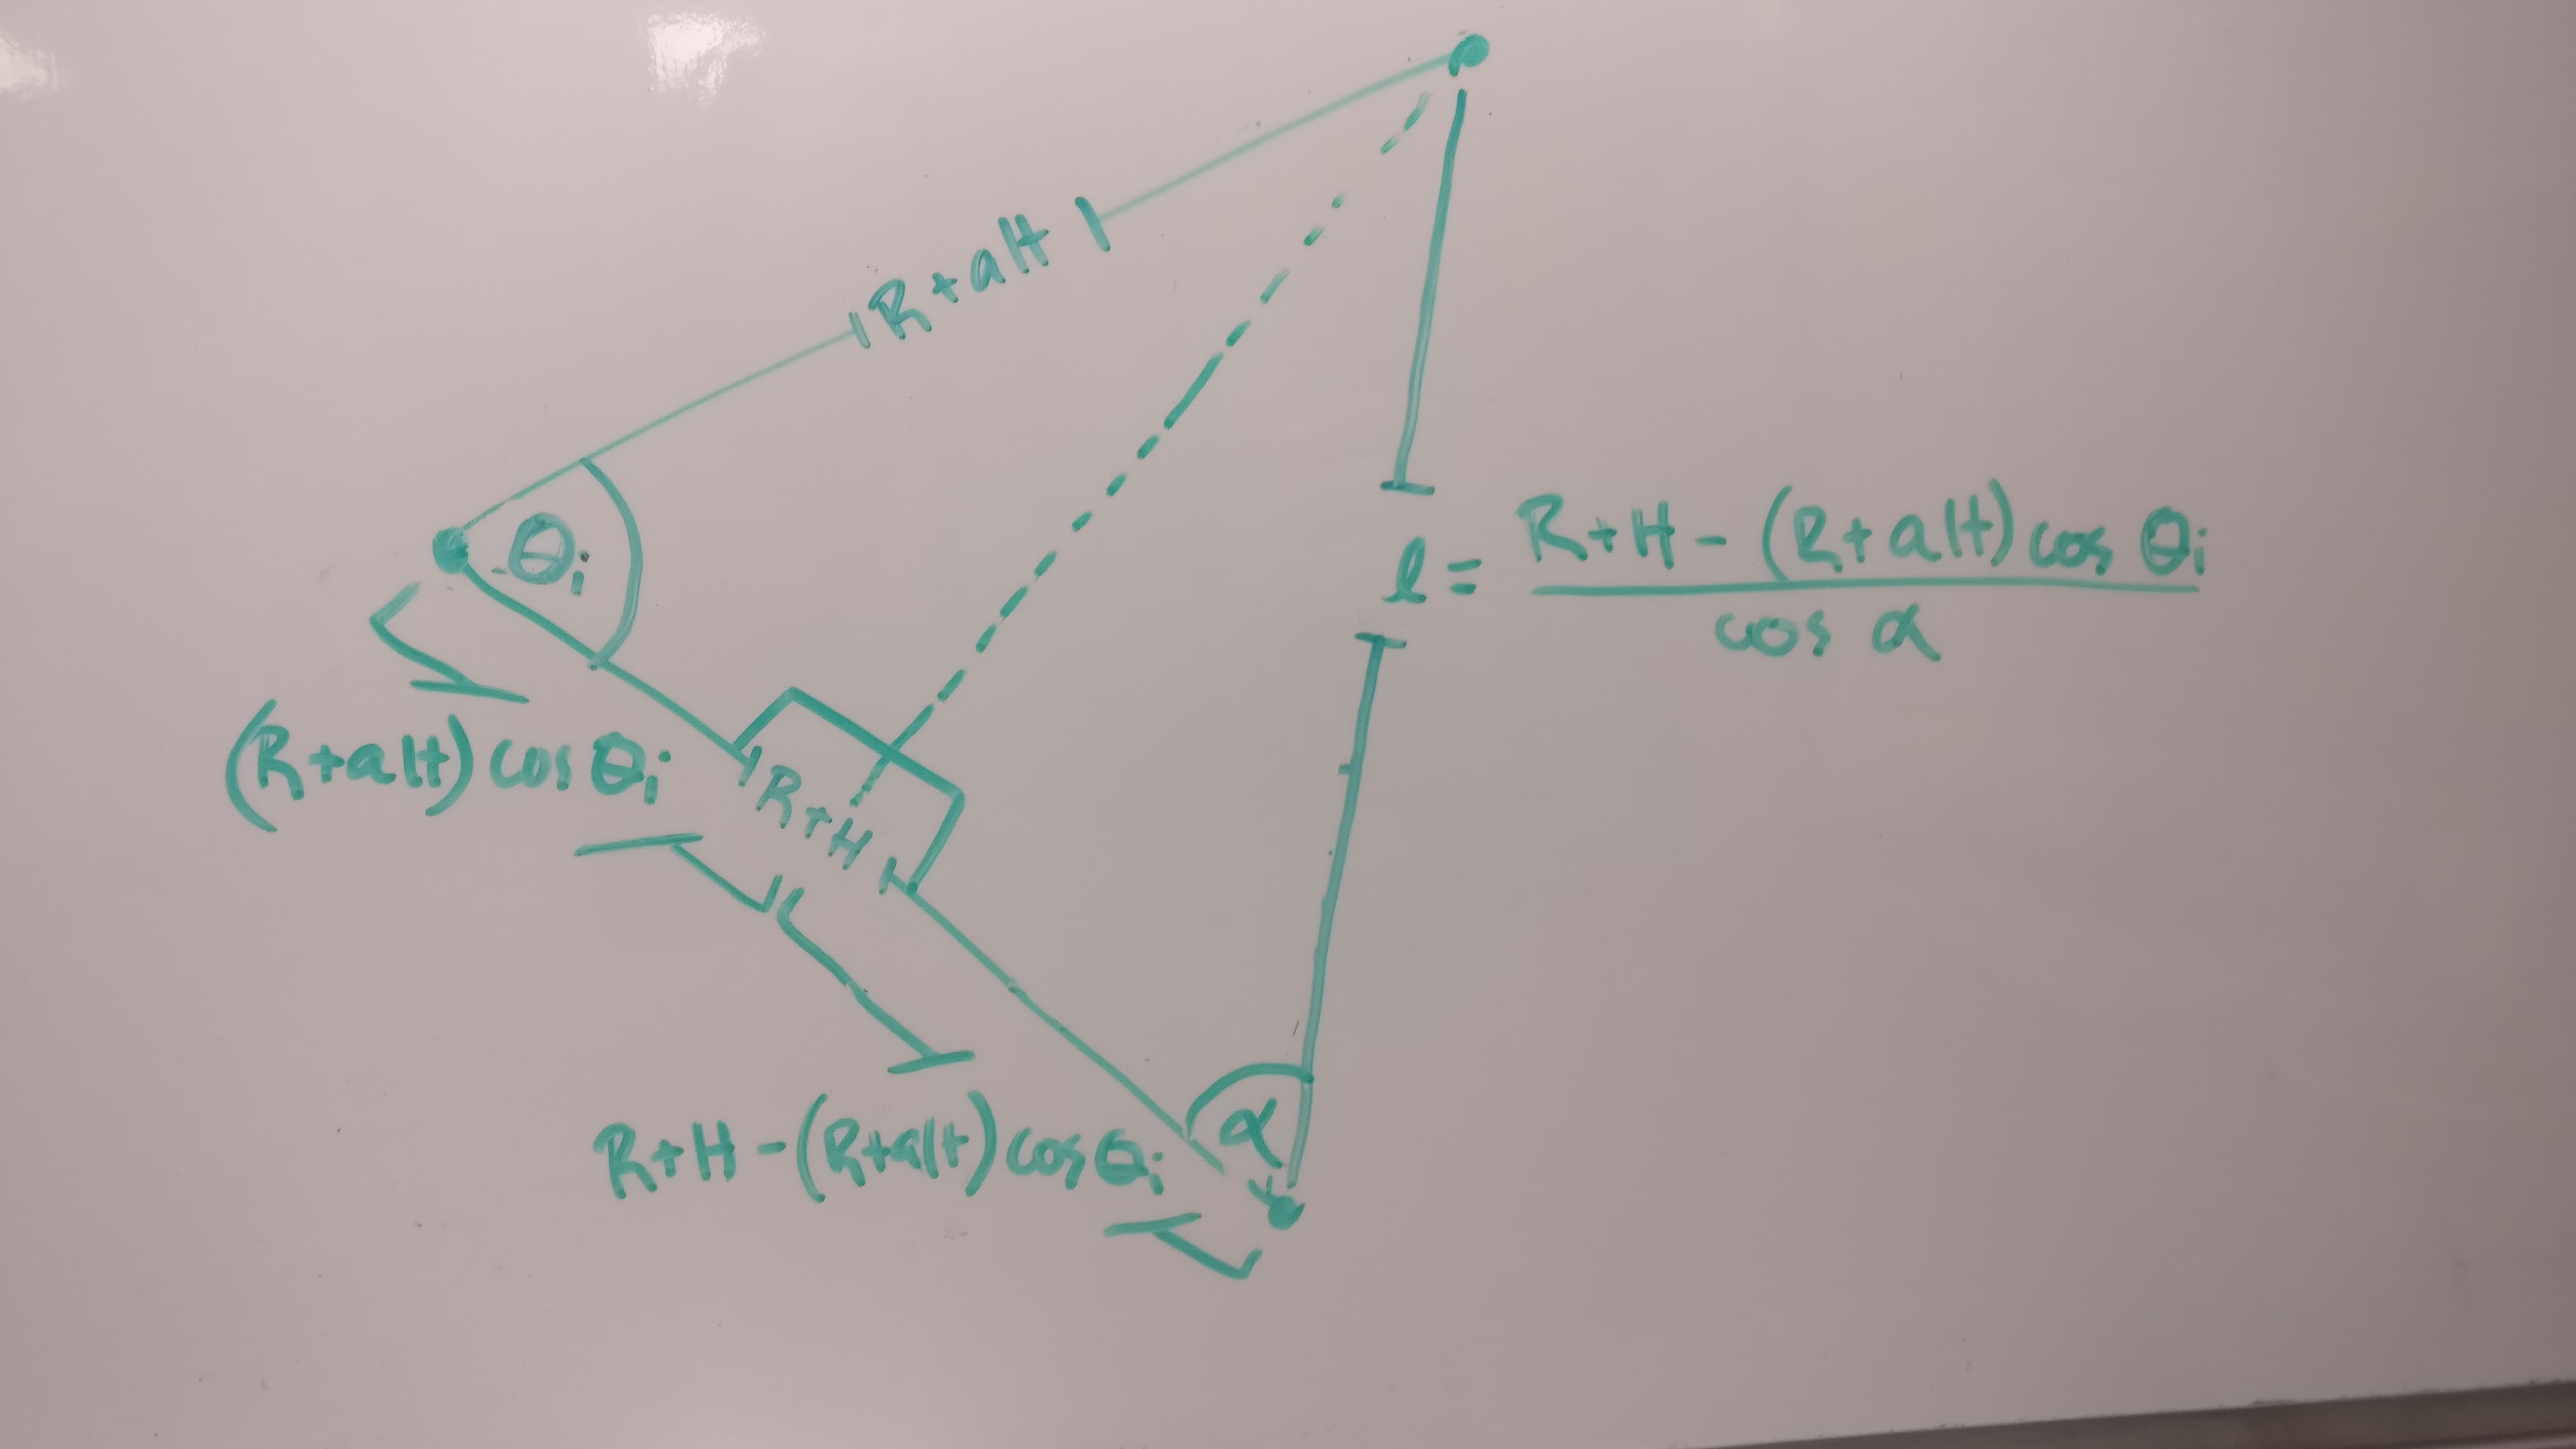 R+alt
θi
l = R+H-(R+alt)cos θi
cos α
(R+alt)cos θi
R+H
R+H-(R+alt)cos θi
α